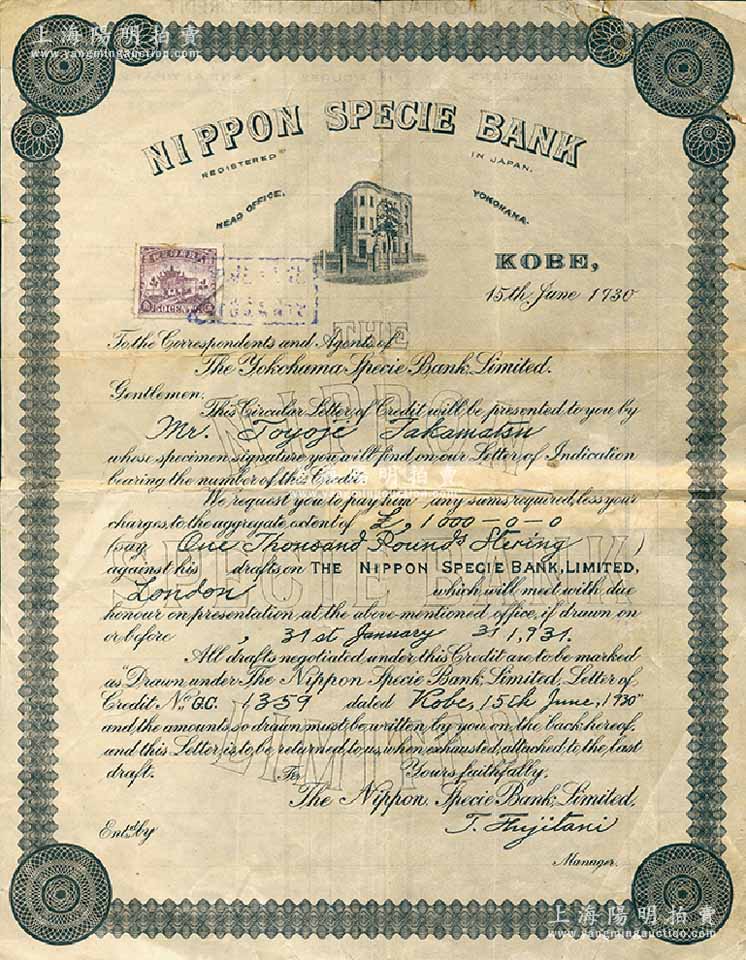 上海陽明拍賣
www.yangmingauction.com
上海陽明拍賣
www.yangmingauction.com
NIPPON SPECIE BANK
REGISTERED IN JAPAN.
HEAD OFFICE, YOKOHAMA.
KOBE,
15th June 1930
50 CENTS
To the Correspondents and Agents of
The Yokohama Specie Bank, Limited.
Gentlemen,
This Circular Letter of Credit will be presented to you by
Mr. Toyoji Takamatsu
whose specimen signature you will find on our Letter of Indication
bearing the number of this Credit.
We request you to pay him any sums required, less your
charges, to the aggregate extent of £ 1000-0-0
(say One Thousand Pounds Stering )
against his drafts on THE NIPPON SPECIE BANK, LIMITED,
London which will meet with due
honour on presentation at the above mentioned office, if drawn on
or before , 31st January 31 1,931.
All drafts negotiated under this Credit are to be marked
as "Drawn under The Nippon Specie Bank, Limited, Letter of
Credit No. 1359 dated Kobe, 15th June, 1930"
and the amounts so drawn must be written by you on the back hereof,
and this Letter is to be returned to us, when exhausted, attached to the last
draft. For Yours faithfully,
The Nippon Specie Bank, Limited,
T. Fujitani
Entd. by
Manager.
THE
NIPPON
SPECIE BANK
LIMITED
上海陽明拍賣
www.yangmingauction.com
上海陽明拍賣
www.yangmingauction.com